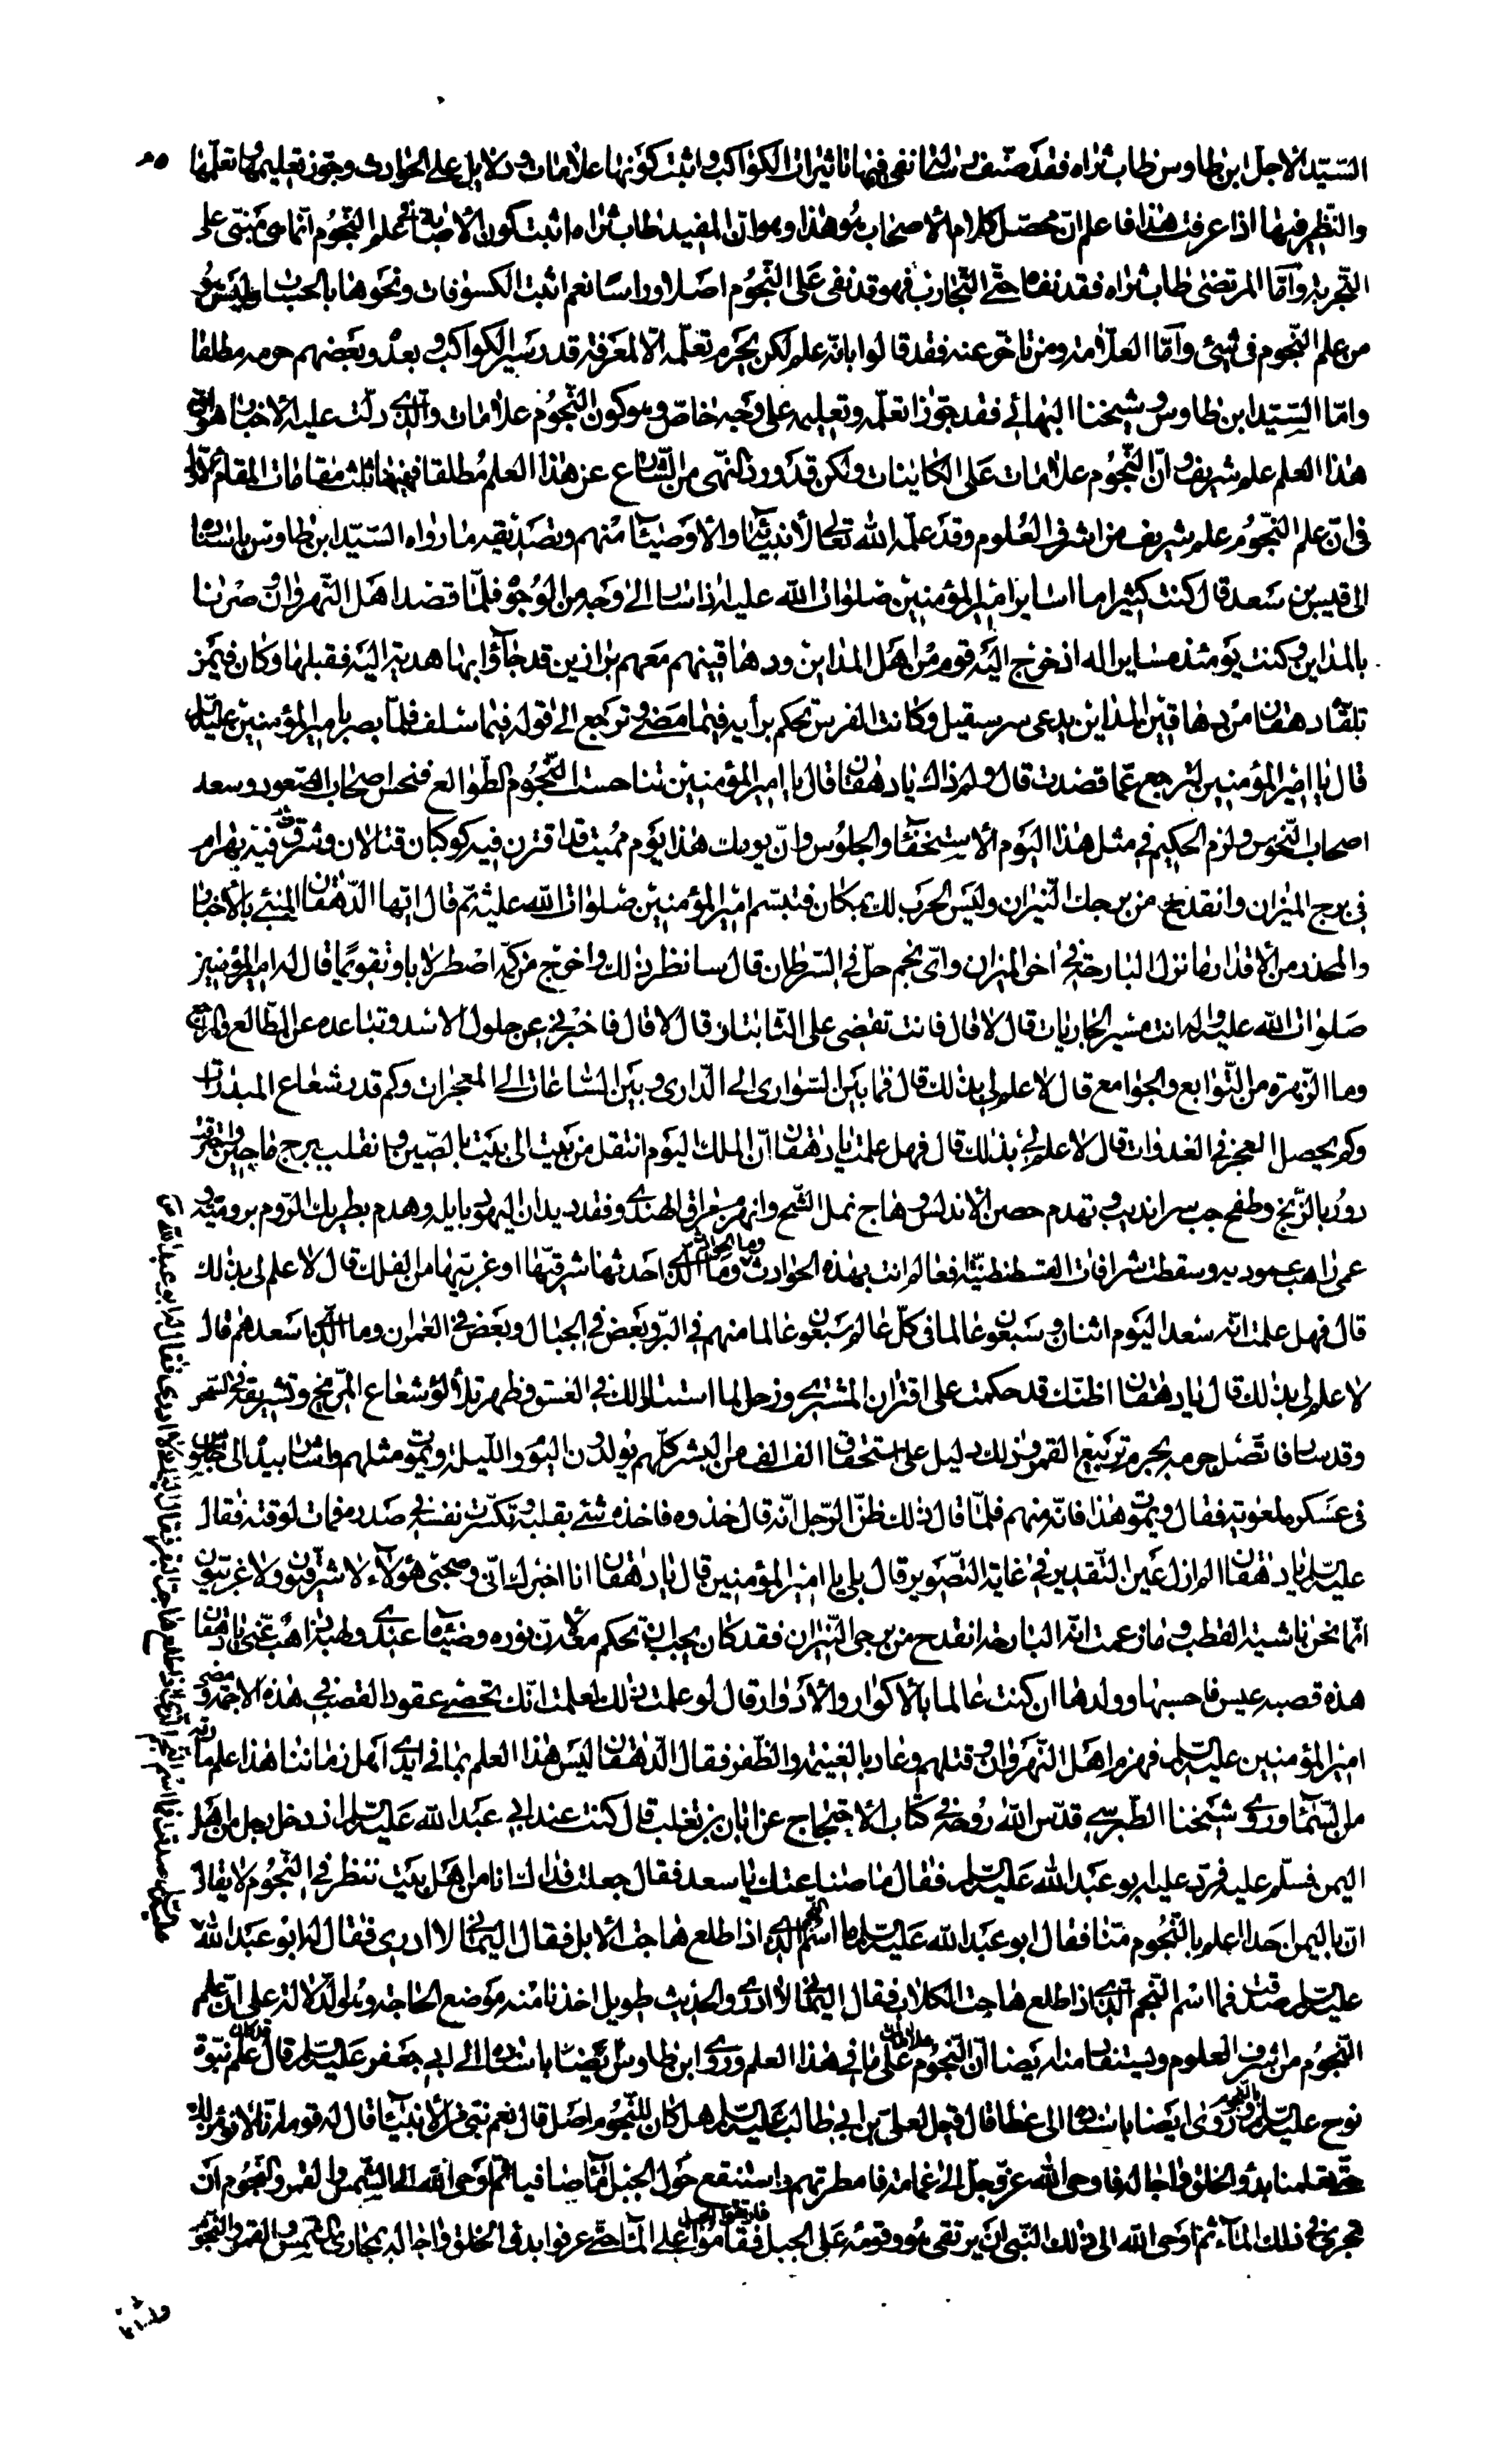 السّيّد الاجلّ ابن طاوس طاب ثراه فقد صنّف رسالة نفى فيها تاثيرات الكواكب و اثبت كونها علامات و دلايل على الحوادث و جوّز تعليمها و تعلّمها
والنّظر فيها اذا عرفت هذا فاعلم انّ محصّل كلام الأصحاب هو هذا و هو انّ المفيد طاب ثراه اثبت كون الأصابة في علم النّجوم انّما هي مبنيّ على
التّجربة و امّا المرتضى طاب ثراه فقد نفاه حتّى التّجارب فهو قد نفى على النّجوم اصلا و راسا نعم اثبت الكسوفات و نحوها بالحساب و ليس هو
من علم النّجوم في شيئ و امّا العلّامة و من تاخّر عنه فقد قالوا بانّه علم لكن يحرم تعلّمه الّا لمعرفة قدر سير الكواكب و بعده و بعضهم حرمه مطلقا
و امّا السّيّد ابن طاوس و شيخنا البهائي فقد جوّزا تعلّمه و تعليمه على وجه خاصّ و هو كون النّجوم علامات و الّذي دلّت عليه الأخبار هو انّ
هذا العلم علم شريف و انّ النّجوم علامات على الكاينات ولكن قد ورد النّهي من الشّارع عن هذا العلم مطلقا فهيهنا ثلث مقامات المقام الأوّل
في انّ علم النّجوم علم شريف من اشرف العلوم و قد علّمه الله تعالى لأنبيائه و الأوصياء منهم و تصديقه ما رواه السّيّد ابن طاوس باسناده
الى قيس بن سعد قال كنت كثيرا ما اساير امير المؤمنين صلوات الله عليه اذا سار الى وجه من الوجوه فلمّا قصد اهل النّهروان و صرنا
بالمداين و كنت يومئذ مسايرا له اذ خرج اليه قوم من اهل المداين من دهاقينهم معهم براذين قد جاؤا بها هدية اليه فقبلها و كان فيمن
تلقّاه دهقان من دهاقين المداين يدعى سرسقيل و كانت الفرس تحكم برأيه فيما مضى و ترجع الى قوله فيما سلف فلمّا بصر بامير المؤمنين عليه السّلم
قال يا امير المؤمنين لترجع عمّا قصدت قال و لم ذاك يا دهقان قال يا امير المؤمنين تناحست النّجوم الطّوالع فنحس اصحاب السّعود و سعد
اصحاب النّحوس و لزم الحكيم في مثل هذا اليوم الأستخفاء و الجلوس و انّ يومك هذا يوم مميت قد اقترن فيه كوكبان قتالان و شرف فيه بهرام
في برج الميزان و انقدح من برجك النّيران و ليس الحرب لك بمكان فتبسّم امير المؤمنين صلوات الله عليه ثمّ قال ايّها الدّهقان المنبئ بالأخبار
والمحذر من الأقدار ما نزل البارحة في اخر الميزان و ايّ نجم حلّ في السّرطان قال سانظر ذلك و اخرج من كمّه اصطرلابا و تقويما قال له امير المؤمنين
صلوات الله عليه و اله انت مسير الجاريات قال لا قال فانت تقضى على الثّابتات قال لا قال فاخبرني عن حلول الأسد و تباعده عن المطالع و المراجع
و ما الزّهرة من التّوابع والجوامع قال لا علم لي بذلك قال فما بين السّواري الى الدّراري و بين السّاعات الى المعجزات و كم قدر شعاع المبدرات
و كم يحصل الفجر في الغدوات قال لا علم لي بذلك قال فهل علمت يا دهقان انّ الملك اليوم انتقل من بيت الى بيت بالصّين و انقلب برج ماچين و احترقت
دور بالزّنج و طفح جب سرانديب و تهدم حصن الأندلس و هاج نمل الشّيح و انهزم مراق الهندي و فقد ديان اليهود بايله و هدم بطريك الرّوم بروميّة و
عمي راهب عموديه و سقطت شرافات القسطنطنيّة افعالم انت بهذه الحوادث و ما الّذي احدثها شرقيّها او غربيّها من الفلك قال لا علم لي بذلك
قال فهل علمت انّه سعد اليوم اثنان و سبعون عالما في كلّ عالم سبعون عالما منهم في البرّ و بعض في الجبال و بعض في العمران و ما الّذي اسعدهم قال
لا علم لي بذلك قال يا دهقان اظنّك قد حكمت على اقتران المشتري و زحل لما استنارا لك في الغسق و ظهر تلألؤ شعاع المرّيخ و تشريقه في السّحر
و قد سار فاتّصل جرمه بجرم تربيع القمر و ذلك دليل على استحقاق الف الف من البشر كلّهم يولدون اليوم و اللّيلة و يموت مثلهم و اشار بيده الى جاسوس
في عسكره لمعوية فقال و يموت هذا فانّه منهم فلمّا قال ذلك ظنّ الرّجل انّه قال خذوه فاخذه شئ بقلبه و تكسّرت نفسه في صدره فمات لوقته فقال
عليه السّلم يا دهقان الم ازل عين التّقدير في غاية التّصوير قال بلى يا امير المؤمنين قال يا دهقان انا اخبرك انّي و صحبي هؤلاء لا شرقيّون و لا غربيّون
انّما نحن ناشئة القطب و ما زعمت انّه البارحة انقدح من برجي النّيران فقد كان يجب ان تحكم معه لأنّ نوره و ضيائه عندي و لهبه ذاهب عنّي يا دهقان
هذه قصيه عيص فاحسبها و ولدها ان كنت عالما بالأكوار و الأدوار قال لو علمت ذلك لعلمت انّك تحصى عقود القصب في هذه الاجمة و مضى
امير المؤمنين عليه السّلم فهزم اهل النّهروان و قتلهم و عاد بالغنيمة و الظّفر فقال الدّهقان ليس هذا العلم بما في ايدي اهل زماننا هذا علم مادّته
من السّماء و روى شيخنا الطّبرسي قدّس الله روحه في كتاب الأحتجاج عن ابان بن تغلب قال كنت عند ابي عبد الله عليه السّلم اذ دخل رجل من اهل
اليمن فسلّم عليه فردّ عليه ابو عبد الله عليه السّلم فقال ما صناعتك يا سعد فقال جعلت فداك انا من اهل بيت ننظر في النّجوم لا يقال
انّ باليمن احدا اعلم بالنّجوم منّا فقال ابو عبد الله عليه السّلم ما اسم النّجم الّذي اذا طلع هاجت الأبل فقال اليماني لا ادري فقال له ابو عبد الله
عليه السّلم صدقت فما اسم النّجم الّذي اذا طلع هاجت الكلاب فقال اليماني لا ادري و الحديث طويل اخذنا منه موضع الحاجة و هو الدّلالة على انّ علم
النّجوم من اشرف العلوم و يستفاد منه ايضا انّ النّجوم علامات على ما في هذا العلم و روى ابن طاوس ايضا باسناده الى ابي جعفر عليه السّلم قال قد كان علم نبوّة
نوح عليه السّلم بالنّجوم و روى ايضا باسناده الى عطا قال قيل لعليّ بن ابي طالب عليه السّلم هل كان للنّجوم اصل قال نعم نبي من الأنبياء قال له قومه انّا لا نؤمن لك
حتّى تعلمنا بدؤ الخلق و اجاله فاوحى الله عزّ و جلّ الى غمامة فامطرتهم و استنقع حول الجبل ماء صافيا ثمّ اوحى الله الى الشّمس و القمر و النّجوم ان
تجري في ذلك الماء ثمّ اوحى الله الى ذلك النّبي ان يرتقى هو و قومه على الجبل فارتقوا الجبل فقاموا على الماء حتّى عرفوا بدؤ الخلق و اجاله بمجاري الشّمس و القمر و النّجوم